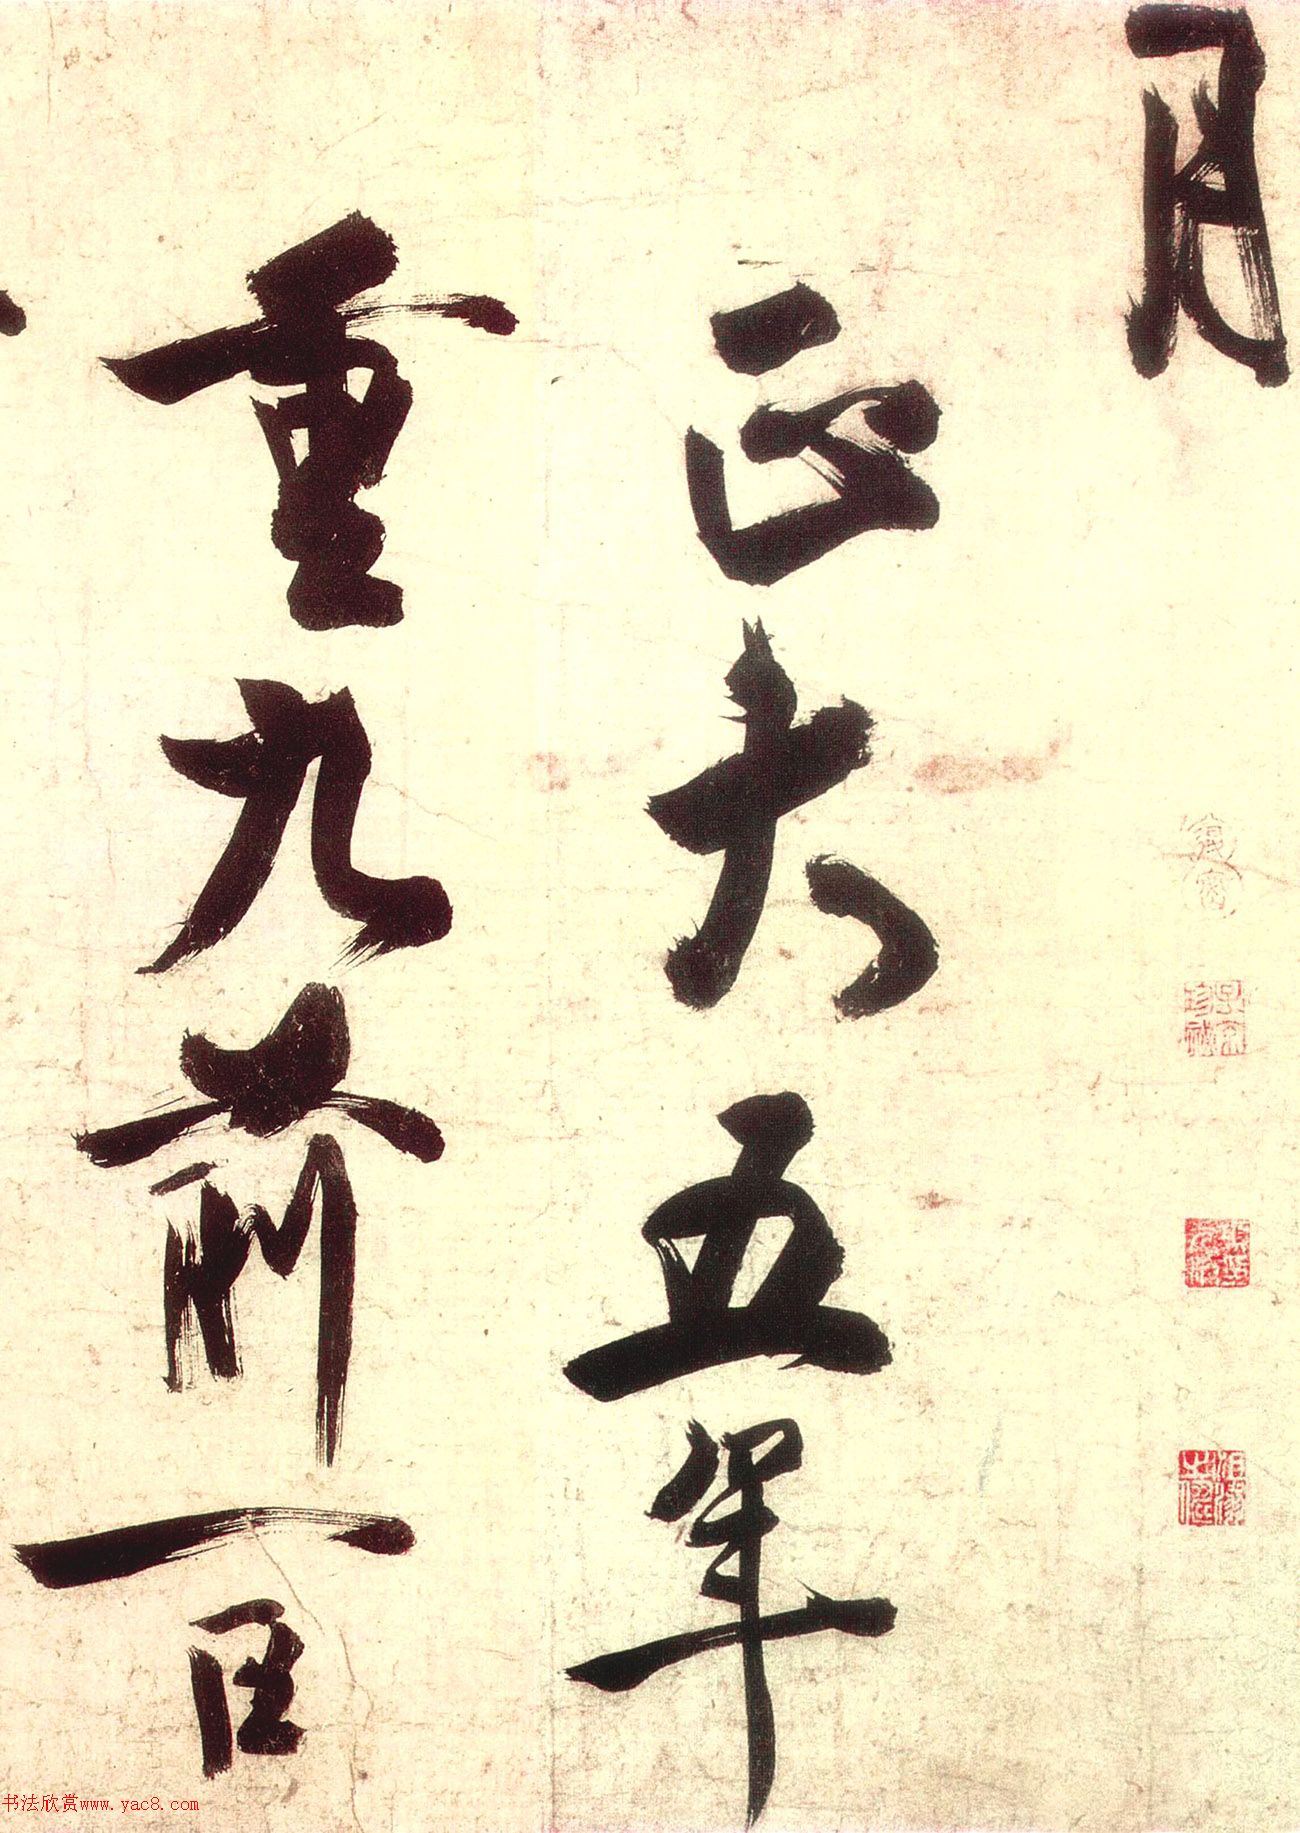 月
正大五年
重九前一日
书法欣赏www.yac8.com